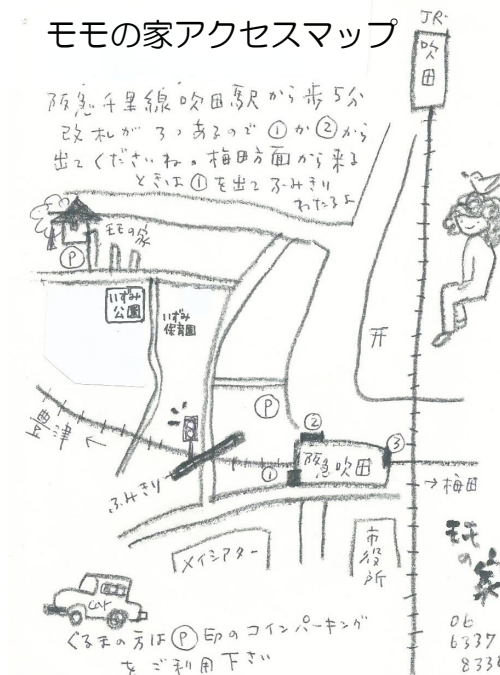 モモの家アクセスマップ
JR
吹田
阪急千里線吹田駅から歩5分
改札が3つあるので①か②から
出てくださいね。梅田方面から来る
ときは①を出てふみきり
わたるよ
モモの家
P
いずみ
公園
いずみ
保育園
P
②
③
阪急吹田
①
ふみきり
←
→梅田
メイシアター
市役所
モモの家
06
6337
8338
car
くるまの方はⓅ印のコインパーキング
をご利用下さい